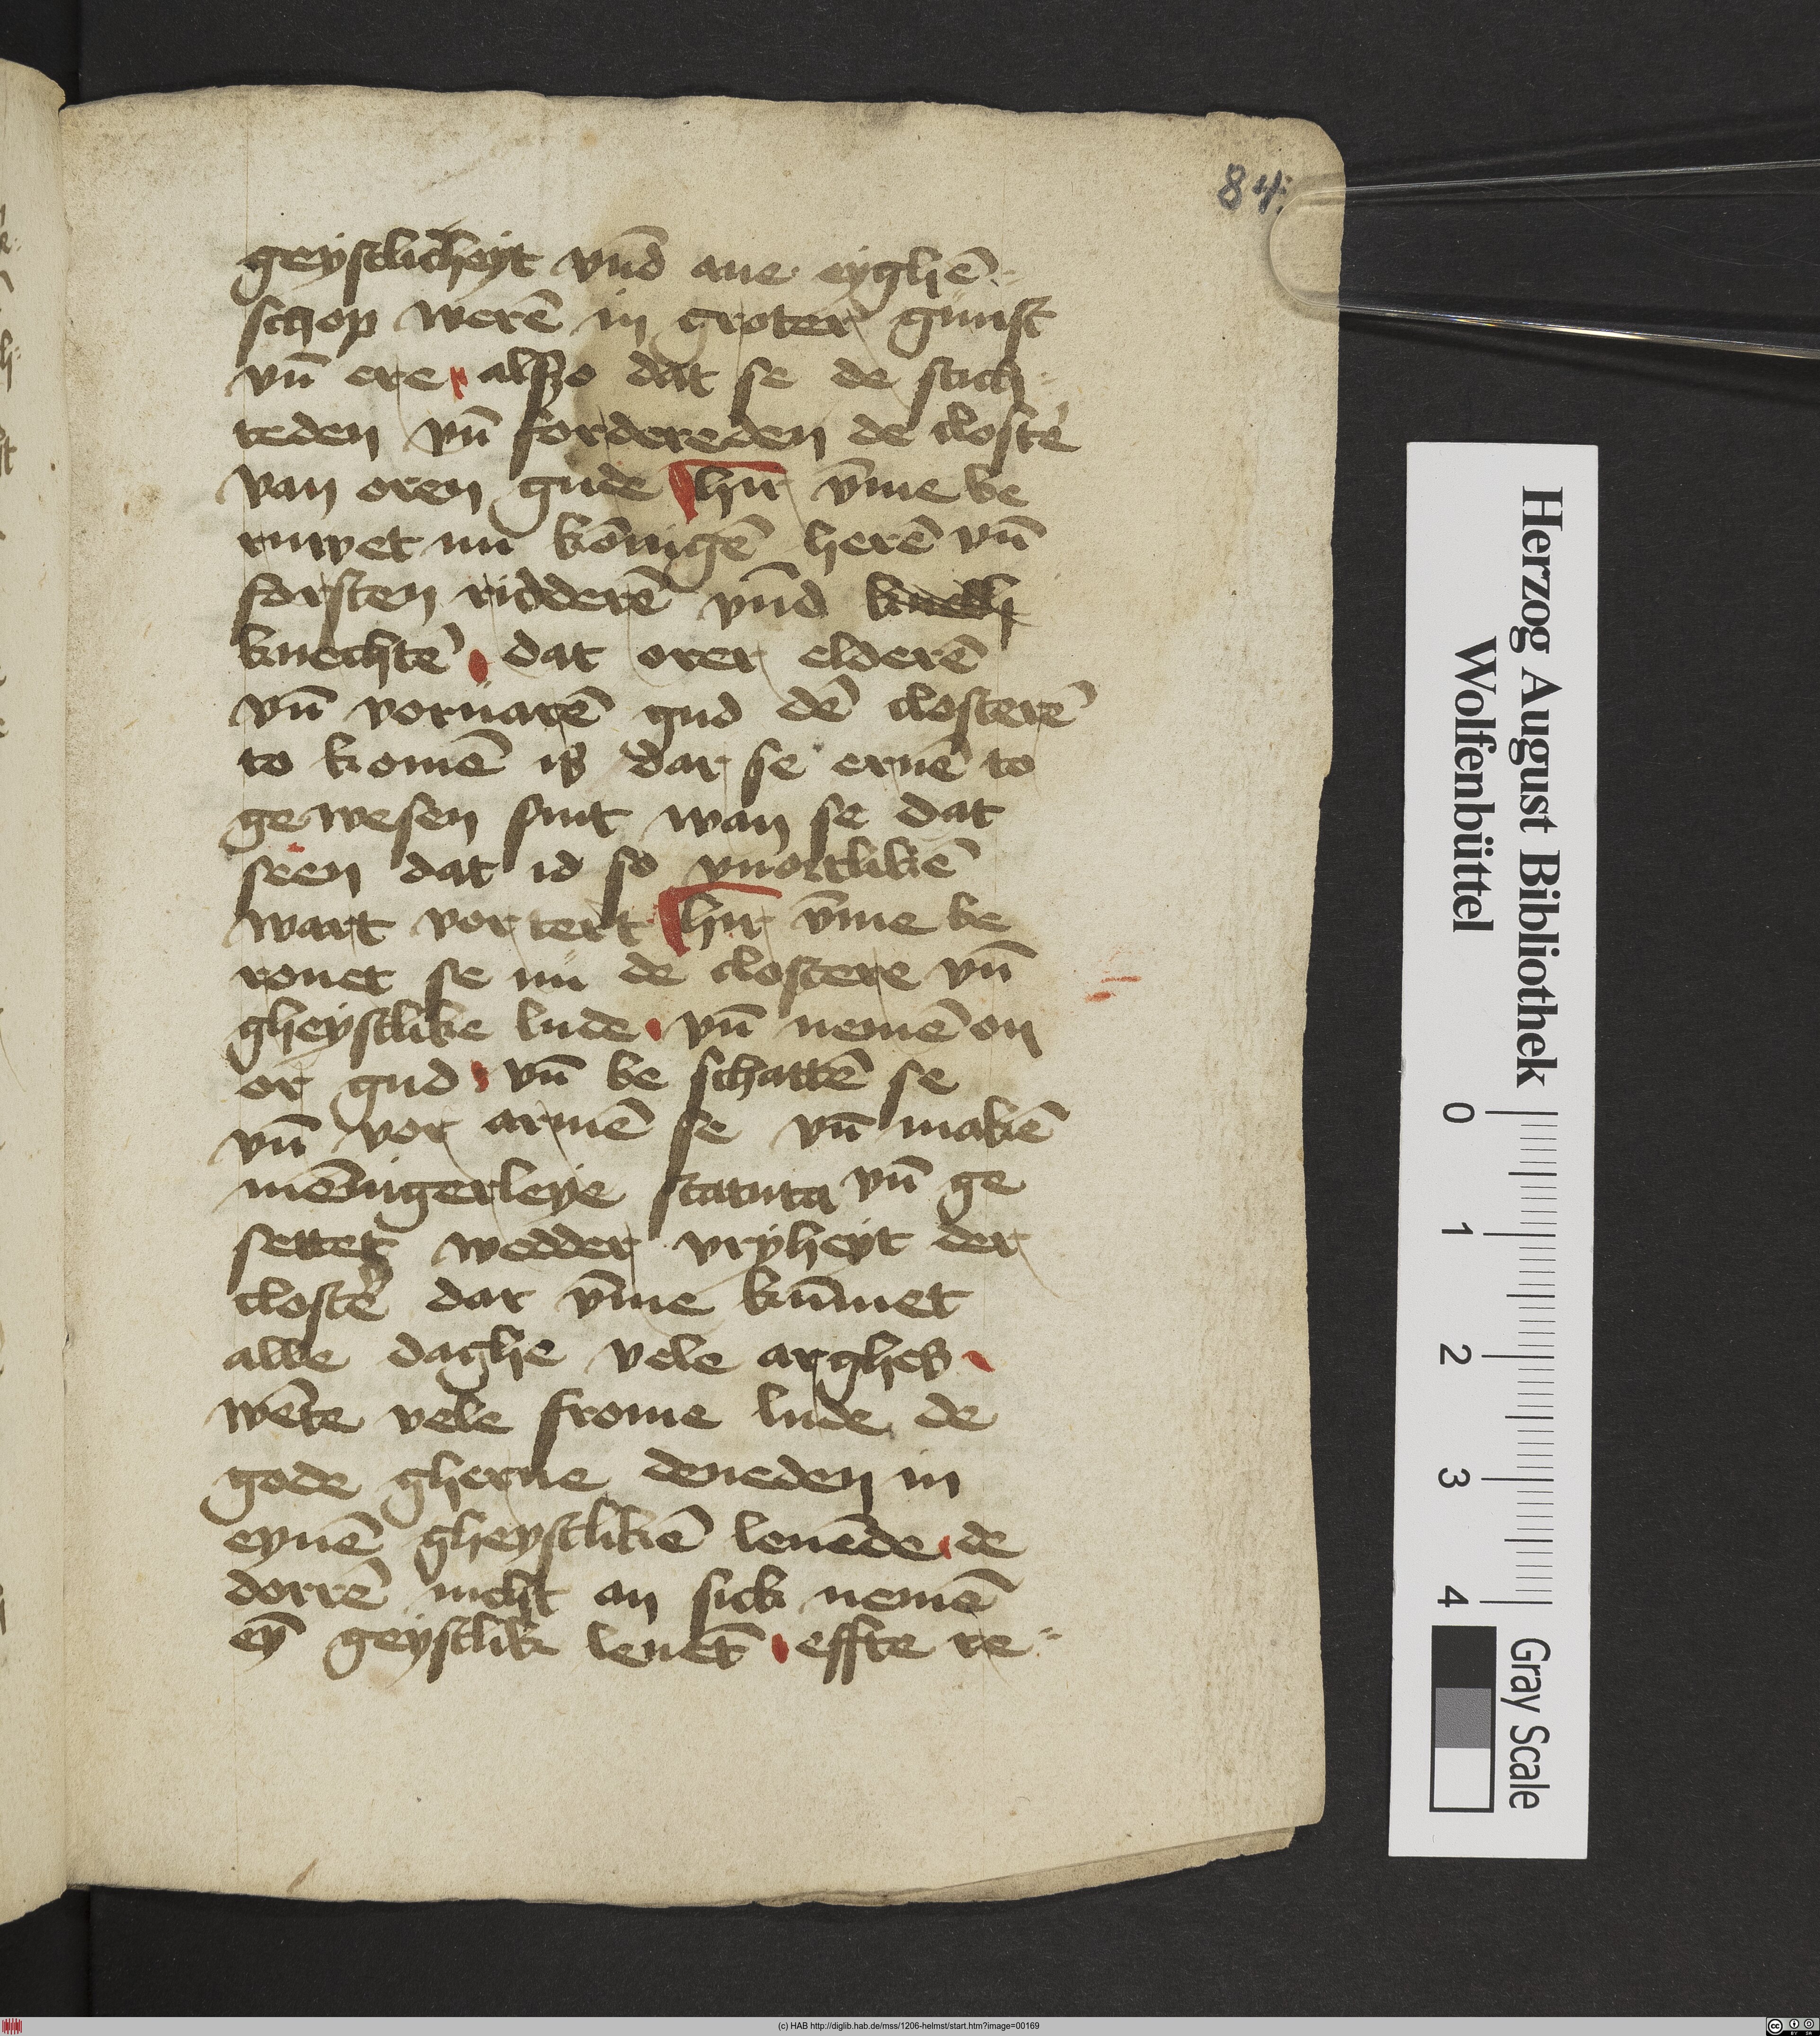 84
geystlicheyt vnd ane eyghē-
schop werē in groter gunst
vn̄ ere alszo dat se de stich-
teden vn̄ fordereden de closte᷑
van oren gude hir v̄me be
ruwet nu kōnigē herē vn̄
forsten ridderē vnd knech
knechtē dat orer elderē
vn̄ voruarē gud dē closterē
to komē is dar se eruē to
gewesen sint wan se dat
seen dat id so vnortlikē
wart vor tert hir v̄me be
rouet se nu de clostere vn̄
gheystlike lude vn̄ nemē on
or gud vn̄ be schattē se
vn̄ vor armē se vn̄ makē
mēnigerleye statuta vn̄ ge
settet wedder vryheyt der
closte᷑ dar v̄me kūmet
alle daghe vele arghes
wēte vele frome lude de
gode gherne deneden in
eynē gheystlikē leuēde de
dorrē nicht an sick nemē
eȳ geystlik leuēt effte re-
Herzog August Bibliothek
Wolfenbüttel
0 1 2 3 4
Gray Scale
(c) HAB http://diglib.hab.de/mss/1206-helmst/start.htm?image=00169